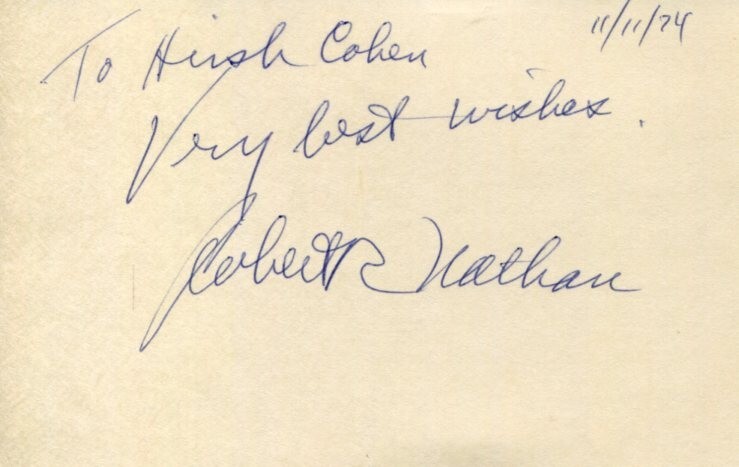 11/11/74
To Hirsh Cohen
Very best wishes.
Robert R Nathan